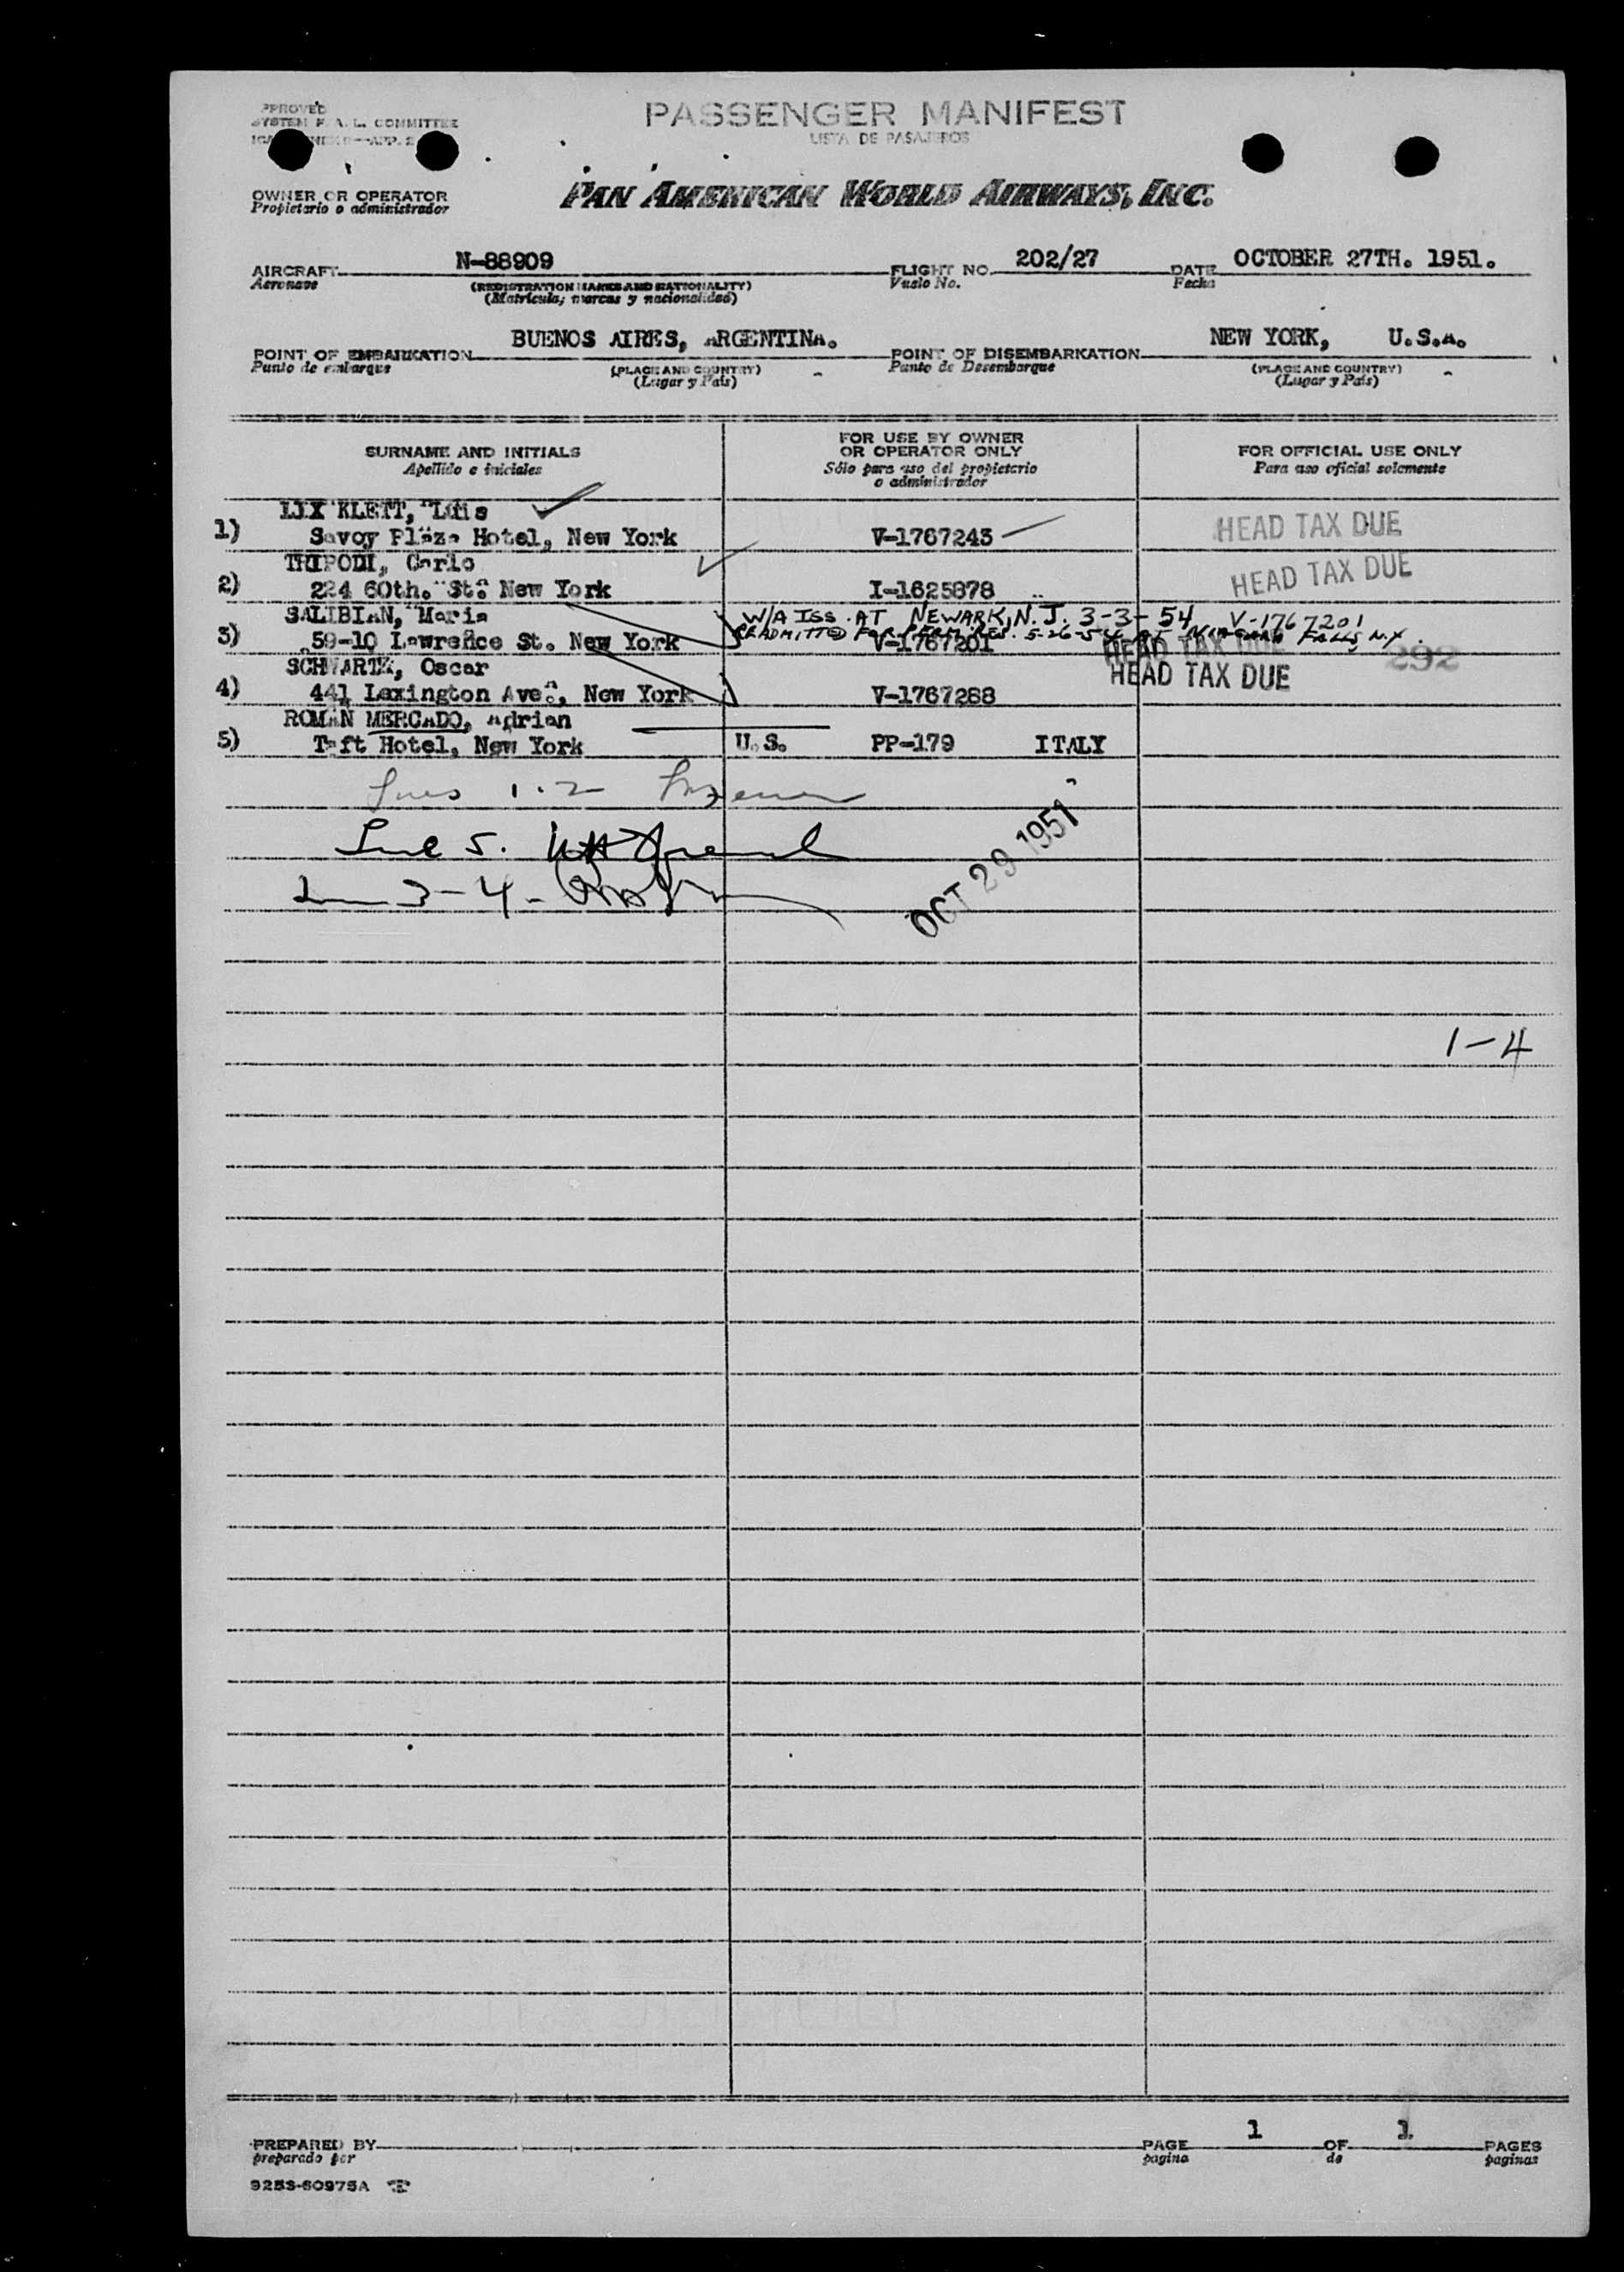 PPROVED
SYSTEM F. A. L. COMMITTEE
PASSENGER MANIFEST
LISTA DE PASAJEROS
OWNER OR OPERATOR
Propietario o administrador
PAN AMERICAN WORLD AIRWAYS, INC.
AIRCRAFT N-88909 FLIGHT NO. 202/27 DATE OCTOBER 27TH. 1951.
Aeronave (REGISTRATION MARKS AND NATIONALITY) Vuelo No. Fecha
(Matrícula, marcas y nacionalidad)
POINT OF EMBARKATION BUENOS AIRES, ARGENTINA. POINT OF DISEMBARKATION NEW YORK, U.S.A.
Punto de embarque (PLACE AND COUNTRY) Punto de Desembarque (PLACE AND COUNTRY)
(Lugar y País) (Lugar y País)
SURNAME AND INITIALS
Apellido e iniciales
FOR USE BY OWNER
OR OPERATOR ONLY
Sólo para uso del propietario
o administrador
FOR OFFICIAL USE ONLY
Para uso oficial solamente
LIX KLETT, Luis
1) Savoy Plaza Hotel, New York V-1767243 HEAD TAX DUE
TRIPODI, Carlo
2) 224 60th. St. New York I-1625878 HEAD TAX DUE
SALIBIAN, Maria W/A ISS. AT NEWARK, N.J. 3-3-54 V-1767201
READMITTED FOR PERM. RES. 5-26-54 AT NIAGARA FALLS N.Y.
3) 59-10 Lawrence St. New York V-1767201 HEAD TAX DUE 292
SCHWARTZ, Oscar
4) 441 Lexington Ave., New York V-1767288 HEAD TAX DUE
ROMAN MERCADO, Adrian
5) Taft Hotel, New York U.S. PP-179 ITALY
1-2
Line 5.
3-4-
OCT 29 1951
1-4
PREPARED BY PAGE 1 OF 1 PAGES
preparado por pagina de paginas
9253-60975A